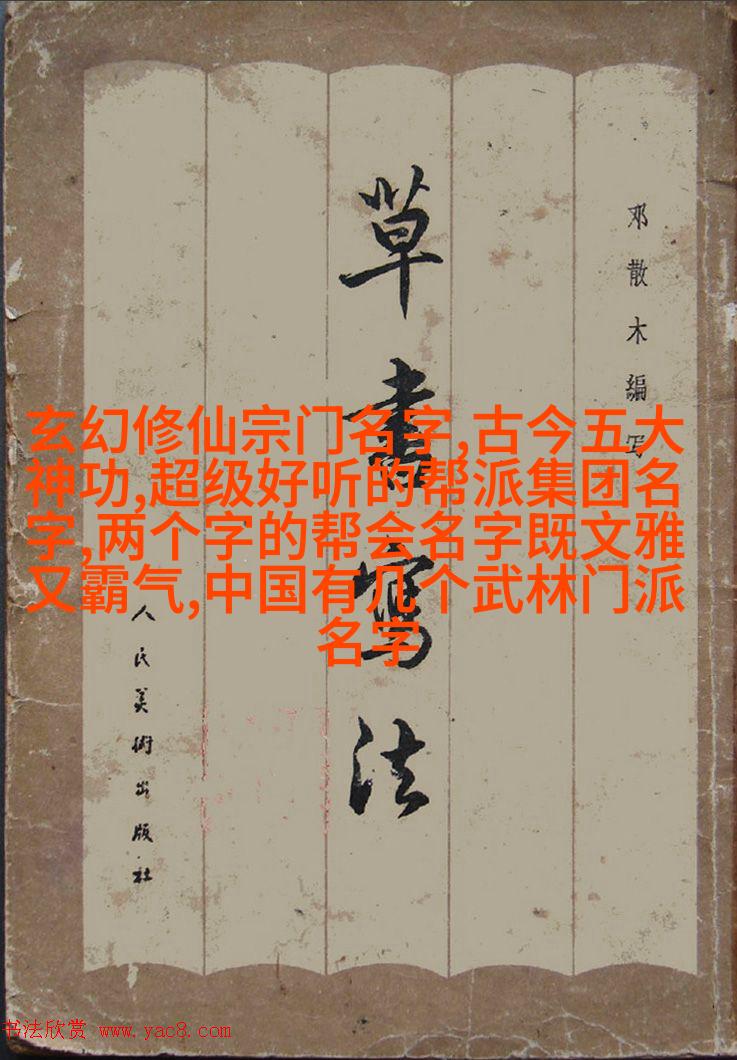 邓散木编写
草书写法
玄幻修仙宗门名字,古今五大
神功,超级好听的帮派集团名
字,两个字的帮会名字既文雅
又霸气,中国有几个武林门派
名字
人民美術出版社
书法欣赏 www.yac8.com